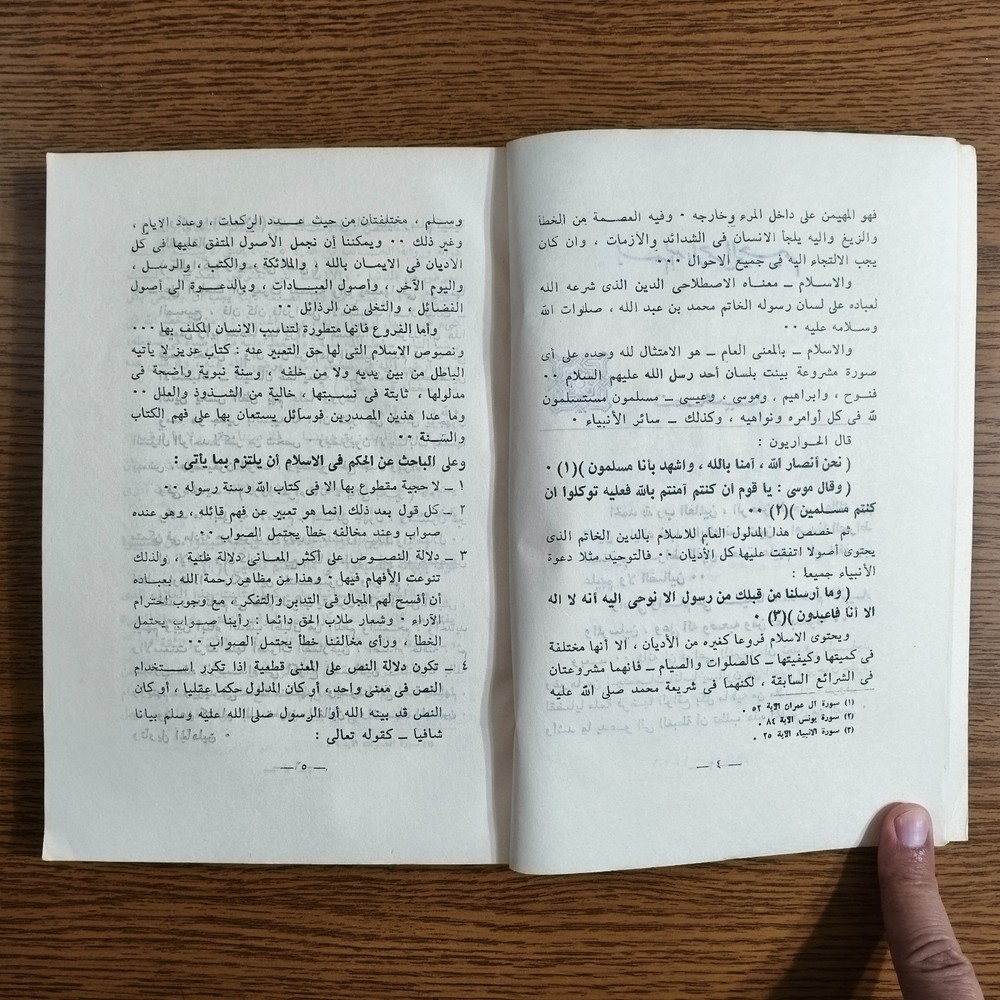 فهو المهيمن على داخل المرء وخارجه ٠ وفيه العصمة من الخطأ
والزيغ واليه يلجأ الانسان فى الشدائد والأزمات ، وان كان
يجب الالتجاء اليه فى جميع الاحوال ٠٠٠
والاسلام ــ معناه الاصطلاحى الدين الذى شرعه الله
لعباده على لسان رسوله الخاتم محمد بن عبد الله ، صلوات الله
وسلامه عليه ٠٠
والاسلام ــ بالمعنى العام ــ هو الامتثال لله وحده على أى
صورة مشروعة بينت بلسان أحد رسل الله عليهم السلام ٠٠
فنوح ، وابراهيم ، وموسى ، وعيسى ــ مسلمون مستسلمون
لله فى كل أوامره ونواهيه ، وكذلك ــ سائر الأنبياء ٠
قال الحواريون :
( نحن أنصار الله ، آمنا بالله ، واشهد بانا مسلمون )(١) ٠
( وقال موسى : يا قوم ان كنتم آمنتم بالله فعليه توكلوا ان
كنتم مسلمين )(٢) ٠٠
ثم خصص هذا المدلول العام للاسلام بالدين الخاتم الذى
يحتوى أصولا اتفقت عليها كل الأديان ٠٠ فالتوحيد مثلا دعوة
الأنبياء جميعا :
( وما أرسلنا من قبلك من رسول الا نوحى اليه أنه لا اله
الا أنا فاعبدون )(٣) ٠
ويحتوى الاسلام فروعا كغيره من الأديان ، الا أنها مختلفة
فى كميتها وكيفيتها ــ كالصلوات والصيام ــ فانهما مشروعتان
فى الشرائع السابقة ، لكنهما فى شريعة محمد صلى الله عليه
(١) سورة آل عمران الآية ٥٢ ٠
(٢) سورة يونس الآية ٨٤ ٠
(٣) سورة الأنبياء الآية ٢٥ ٠
ــ ٤ ــ
وسلم ، مختلفتان من حيث عدد الركعات ، وعدد الأيام ،
وغير ذلك ٠٠ ويمكننا أن نجمل الأصول المتفق عليها فى كل
الأديان فى الايمان بالله ، والملائكة ، والكتب ، والرسل ،
واليوم الآخر ، وأصول العبادات ، وبالدعوة الى أصول
الفضائل ، والتخلى عن الرذائل ٠٠
وأما الفروع فانها متطورة لتناسب الانسان المكلف بها ٠٠٠
ونصوص الاسلام التى لها حق التعبير عنه : كتاب عزيز لا يأتيه
الباطل من بين يديه ولا من خلفه ، وسنة نبوية واضحة فى
مدلولها ، ثابتة فى نسبتها ، خالية من الشذوذ والعلل ٠٠
وما عدا هذين المصدرين فوسائل يستعان بها على فهم الكتاب
والسنة ٠٠
وعلى الباحث عن الحكم فى الاسلام أن يلتزم بما يأتى :
١ ــ لا حجية مقطوع بها الا فى كتاب الله وسنة رسوله ٠٠
٢ ــ كل قول بعد ذلك انما هو تعبير عن فهم قائله ، وهو عنده
صواب وعند مخالفه خطأ يحتمل الصواب ٠٠
٣ ــ دلالة النصوص على أكثر المعانى دلالة ظنية ، ولذلك
تنوعت الأفهام فيها ٠ وهذا من مظاهر رحمة الله بعباده
أن أفسح لهم المجال فى التدبر والتفكر ، مع وجوب احترام
الآراء ٠ وشعار طلاب الحق دائما : رأينا صواب يحتمل
الخطأ ، ورأى مخالفنا خطأ يحتمل الصواب ٠٠
٤ ــ تكون دلالة النص على المعنى قطعية اذا تكرر استخدام
النص فى معنى واحد ، أو كان المدلول حكما عقليا ، أو كان
النص قد بينه الله أو الرسول صلى الله عليه وسلم بيانا
شافيا ــ كقوله تعالى :
ــ ٥ ــ